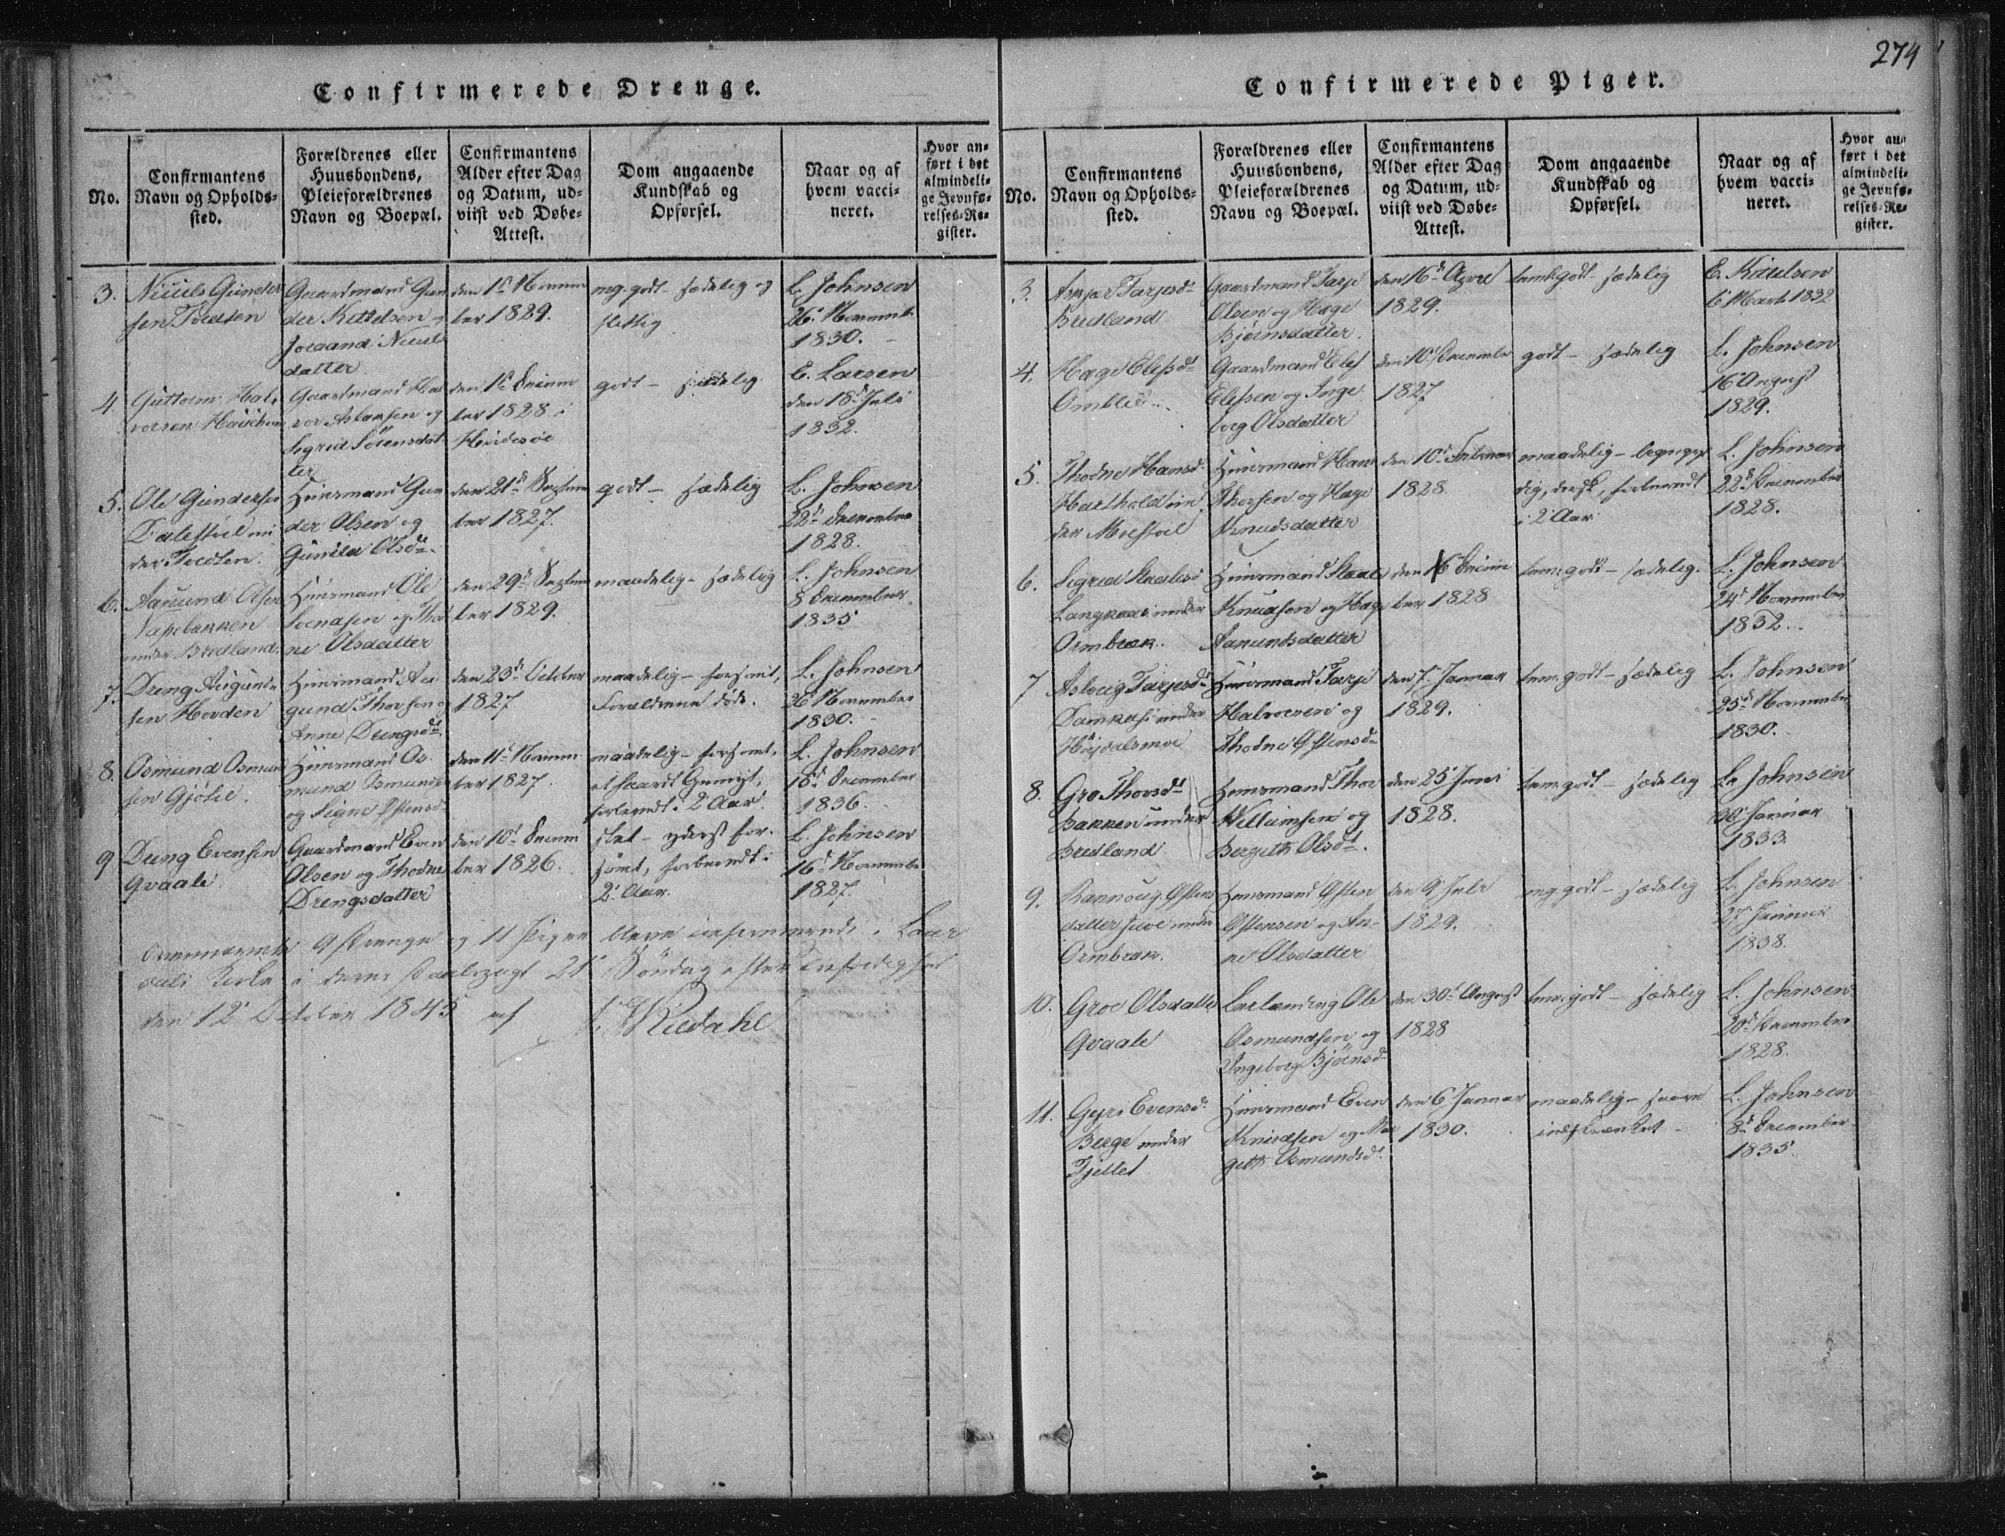 274
Confirmerede Drenge.
No.
Confirmantens
Navn og Opholds-
sted.
Forældrenes eller
Huusbondens,
Pleieforældrenes
Navn og Boepæl.
Confirmantens
Alder efter Dag
og Datum, ud-
viist ved Døbe-
Attest.
Dom angaaende
Kundskab og
Opførsel.
Naar og af
hvem vacci-
neret.
Hvor an-
ført i det
almindeli-
ge Jevnfø-
relses-Re-
gister.
3.
Gaardmand Gun
der Kittelsen
datter
den 1ste
ber 1829.
mg. godt sædelig og
flittig
L. Johnsen
1830.
4.
Guttorm Hal
vorsen
Gaardmand Ha
vor Aslaksen og
Sigrid Sörensdat
ter
ber 1828 i
Hvidesøe
godt - sædelig
E. Larsen
den 18d Juli
1832.
5.
Ole Gundersen
Huusmand Gun
der Olsen og
Gunild Olsd.
den 21d Septem
ber 1827.
godt - sædelig
L. Johnsen
22d December
1828.
6.
Aamund Olsen
under Bredland
Huusmand Ole
Svendsen og Tho
ne Olsdatter
den 29d Septem
ber 1829.
maadelig - sædelig
L. Johnsen
8 December
1835
7.
Dreng Augund
sen Hovden
Huusmand Au
gund Thorsen og
Anne Drengsd.
den 23d October
1827
maadelig - forsømt,
Forældrene döde.
L. Johnsen
26 November
1830.
8.
Osmund Osmun
sen Gjötie.
Huusmand Os
mund Osmundsen
og Signe Østensd
den 11t Novem
ber 1827.
maadelig - forsømt,
forberedt i 2 Aar.
L. Johnsen
15d December
1836.
9
Dreng Evensen
Qvaale.
Gaardmand Even
Olsen og Thodne
Drengsdatter
den 10d Decem
ber 1826.
slet - yderst for-
sömt, forberedt i
2 Aar.
L. Johnsen
16d November
1827.
Ovennævnte 9 Drenge og 11 Piger bleve confirmerede i Laur
dals Kirke i deres Daabspagt 21d Söndag efter Trefoldighed
den 12 October 1845 af
Confirmerede Piger.
No.
Confirmantens
Navn og Opholds-
sted.
Forældrenes eller
Huusbondens,
Pleieforældrenes
Navn og Boepæl.
Confirmantens
Alder efter Dag
og Datum, ud-
viist ved Døbe-
Attest.
Dom angaaende
Kundskab og
Opførsel.
Naar og af
hvem vacci-
neret.
Hvor an-
ført i det
almindeli-
ge Jevnfø-
relses-Re-
gister.
3.
Bredland
Gaardmand Tarje
Olsen og Hæge
Bjørnsdatter.
den 16d
1829.
tem. godt sædelig
E. Knudsen
6 Marts 1832
4.
Hæge Elefsd.
Gaardmand Elef
Elefsen og Inge
borg Olsdatter
den 10d December
1827
godt - sædelig
L. Johnsen
16 August
1829.
5.
Thodne Hansd.
Huusmand Hans
Thorsen og Hæge
Knudsdatter
den 10d Februar
1828
maadelig
i 2 Aar
L. Johnsen
22d December
1828.
6.
Sigrid
under
Ormbrek.
Huusmand
Knudsen og Hæge
Aamundsdatter
den 16 Decem
ber 1828
tem. godt - sædelig.
L. Johnsen
24d November
1832.
7
Asloug Tarjesd.
under
Höjdalsmoe
Huusmand Tarje
Halvorsen og
Thodne Østensd.
den 7. Januar
1829.
tem. godt - sædelig
L. Johnsen
25d November
1830.
8.
Gro Thorsd.
Bakken under
Bredland
Huusmand Thor
Willumsen og
Bergith Olsd.
den 25d Juni
1828.
tem. godt - sædelig
L. Johnsen
20 Januar
1833
9.
Rannoug Østens
datter under
Ormbrek.
Huusmand Østen
Østensen og An-
ne Olsdatter
den 9 Juli
1829.
mg. godt - sædelig
L. Johnsen
27 Januar
1838.
10.
Groe Olsdatter
Qvaale
Ole
Osmundsen og
Ingeborg Bjørnsd.
den 30d August
1828
tem. godt - sædelig
L. Johnsen
20d December
1828.
11.
Gyri Evensd.
Berge under
Fjellet
Huusmand Even
Knudsen og Mar
geth Osmundsd.
den 6 Januar
1830.
maadelig - svare
indskrænket -
L. Johnsen
8d December
1835.